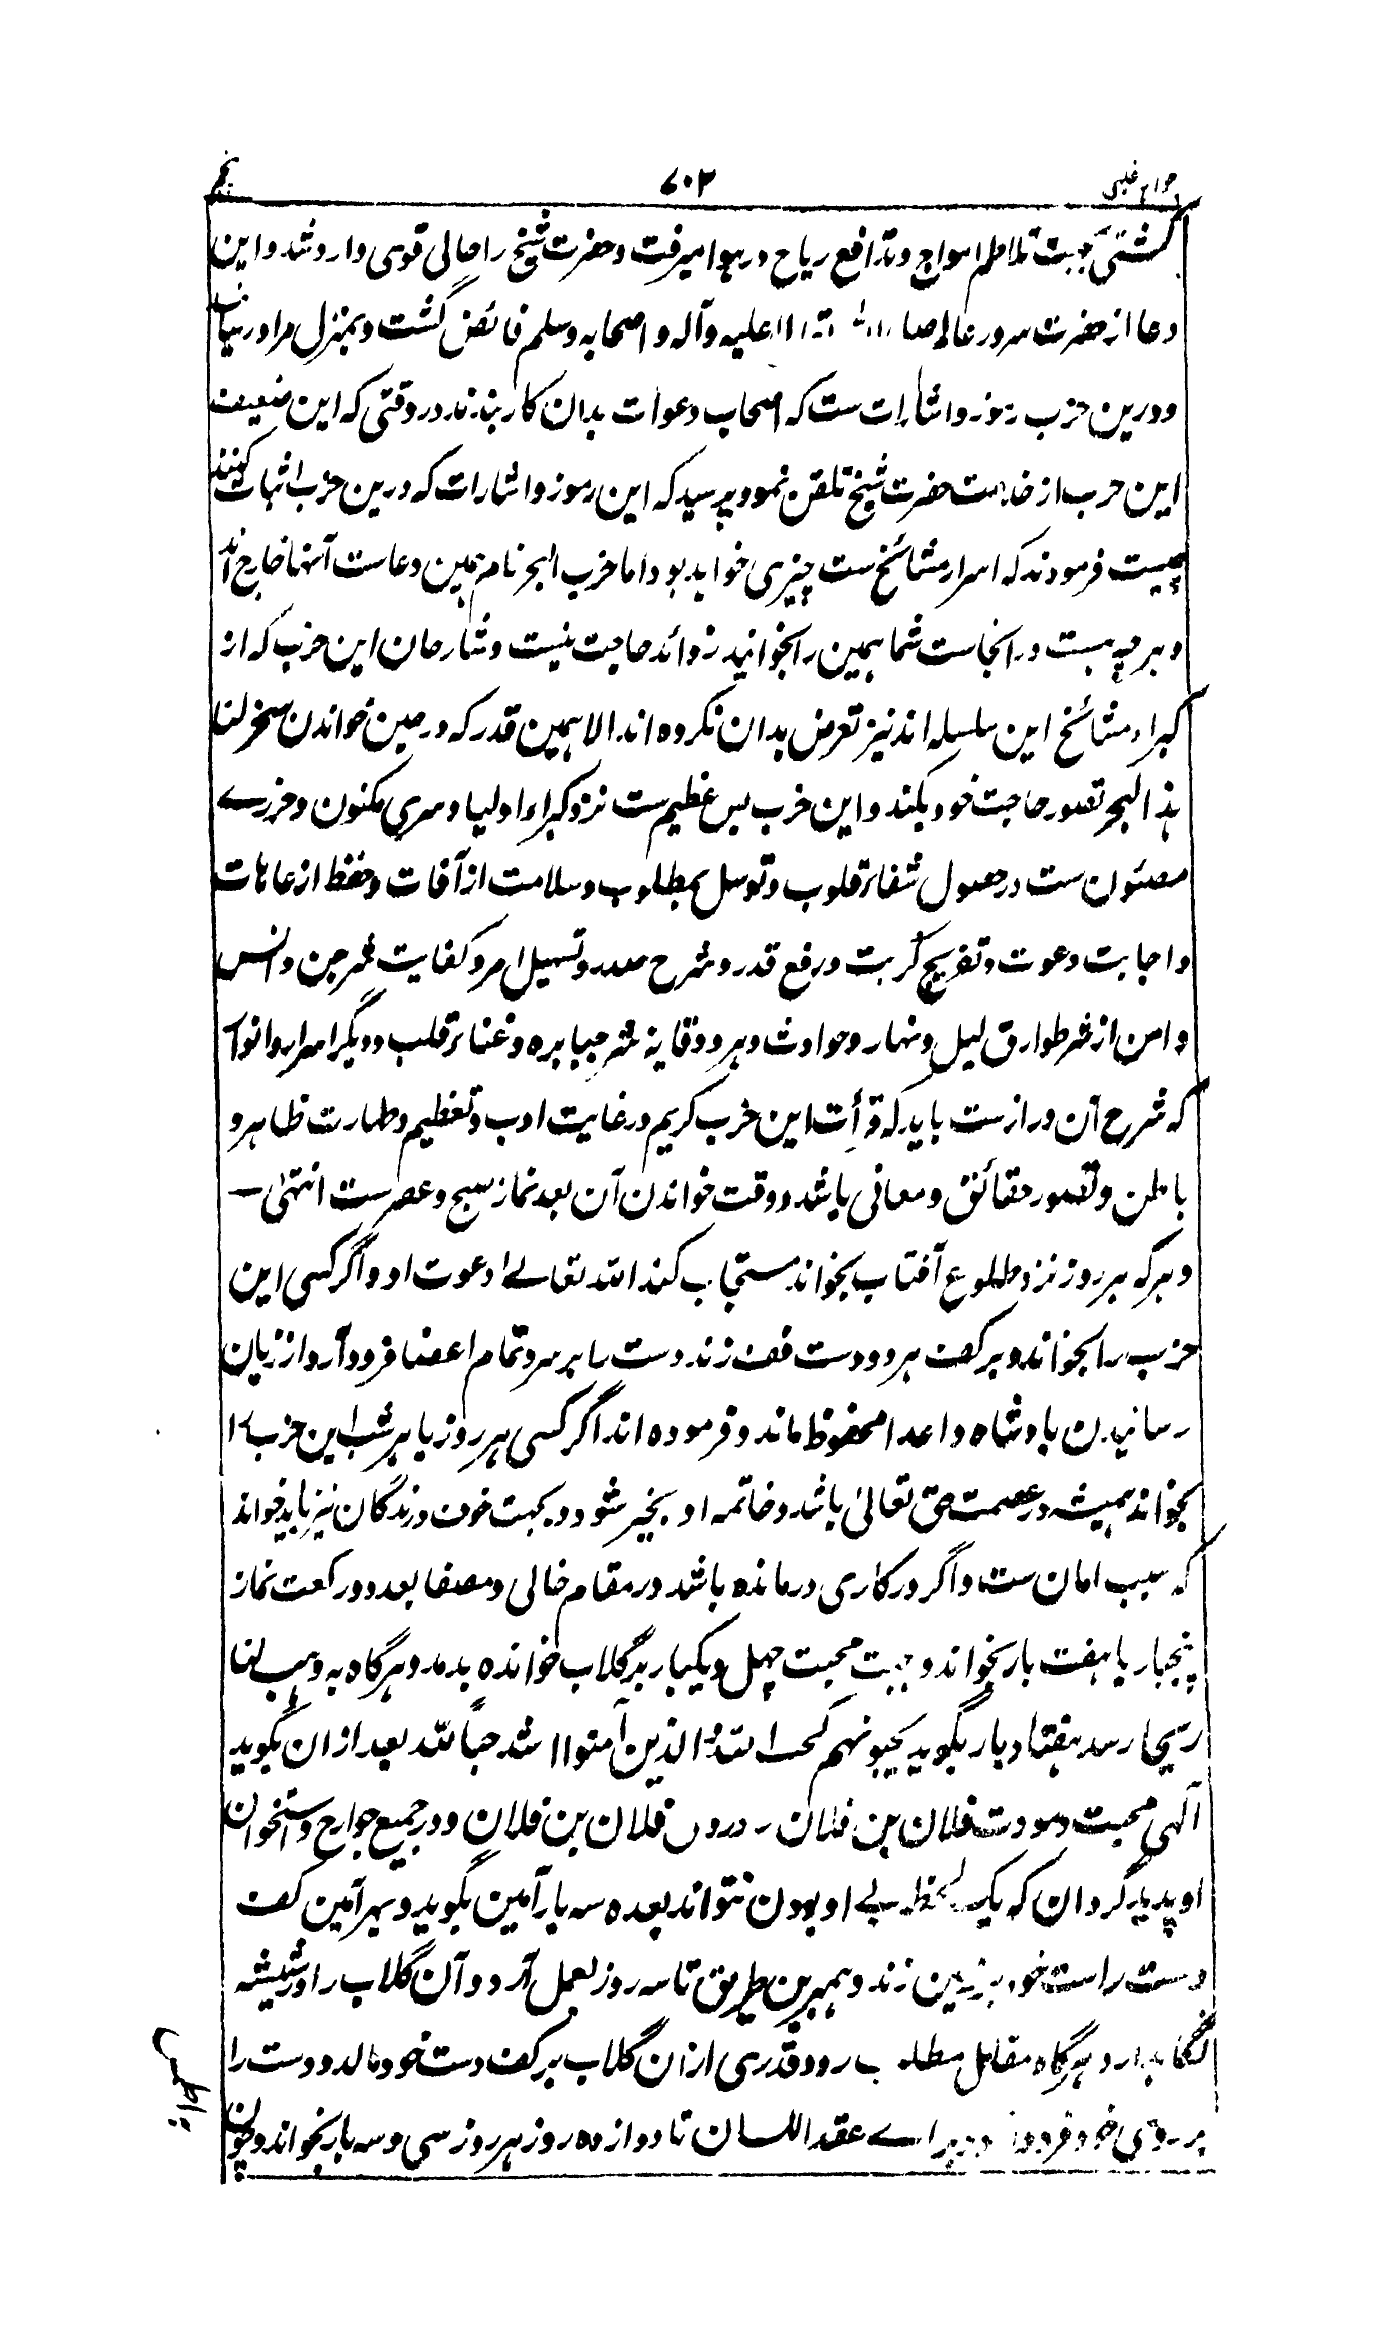 جواہر غیبی ۷۰۲ پنجم
کشتی بجهت تلاطم امواج و تدافع ریاح در هوا میرفت و حضرت شیخ را حالی قوی وارد شد و این
دعا از حضرت سرور عالم علیه وآله واصحابه وسلم فائض گشت و بمنزل مراد رسیدند
و درین حزب رموز و اشارات ست که اصحاب دعوات بدان کار بندند در وقتی که این ضعیف
این حزب از خدمت حضرت شیخ تلقن نمود پرسید که این رموز و اشارات که درین حزب اثبات کنند
چیست فرمودند که اسرار مشائخ ست چیزی خواهد بود اما حزب البحر نام همین دعاست آنها خارج اند
و هرچه هست در انجاست شما همین را بخوانید زوائد حاجت نیست و شارحان این حزب که از
کبراء مشائخ این سلسله اند نیز تعرض بدان نکرده اند الا همین قدر که در حین خواندن سخر لنا
هذا البحر تصور حاجت خود بکند و این حزب بس عظیم ست نزد کبراء اولیا و سری مکنون و حرزے
مصئون ست در حصول شفاء قلوب و توسل بمطلوب و سلامت از آفات و حفظ از عاهات
و اجابت دعوت و تفریج کربت و رفع قدر و شرح صدر و تسهیل امر و کفایت شر جن و انس
و امن از شر طوارق لیل و نهار و حوادث دهر و وقایه شر جبابره و غناء قلب و دیگر اسرار و انوار
که شرح آن دراز ست باید که قرأت این حزب کریم در غایت ادب و تعظیم و طهارت ظاهر و
باطن و تصور حقائق و معانی باشد و وقت خواندن آن بعد نماز صبح و عصر ست انتهیٰ —
و هر که هر روز نزد طلوع آفتاب بخواند مستجاب کند الله تعالےٰ دعوت او و اگر کسی این
حزب را بخواند و بر کف هر دو دست تف زند دست را بر سر و تمام اعضا فرود آرد از زیان
رسانیدن پادشاه و اعدا محفوظ ماند و فرموده اند اگر کسی هر روز یا هر شب این حزب را
بخواند همیشه در عصمت حق تعالیٰ باشد و خاتمه او بخیر شود و بجهت خوف درندگان نیز باید خواند
که سبب امان ست و اگر در کاری درمانده باشد در مقام خالی و مصفا بعد دو رکعت نماز
پنجبار یا هفت بار بخواند و جهت محبت چهل و یکبار بر گلاب خوانده بدمد و هرگاه به و هب لنا
ریحا رسد هفتاد بار بگوید یحبونهم کحب الله والذین آمنوا اشد حباً لله بعد از ان بگوید
آلهی محبت و مودت فلان بن فلان در دل فلان بن فلان و در جمیع جوارح و استخوان
او پدید گردان که یک لحظه بے او بودن نتواند بعده سه بار آمین بگوید و بهر آمین کف
دست راست خود بر زمین زند و همبرین طریق تا سه روز بعمل آرد و آن گلاب را در شیشه
نگاهدارد و هرگاه مقابل مطلوب رود قدری از ان گلاب بر کف دست خود مالد و دست را
بر روی خود فرود و براے عقد اللسان تا دوازده روز هر روز سی و سه بار بخواند و چون